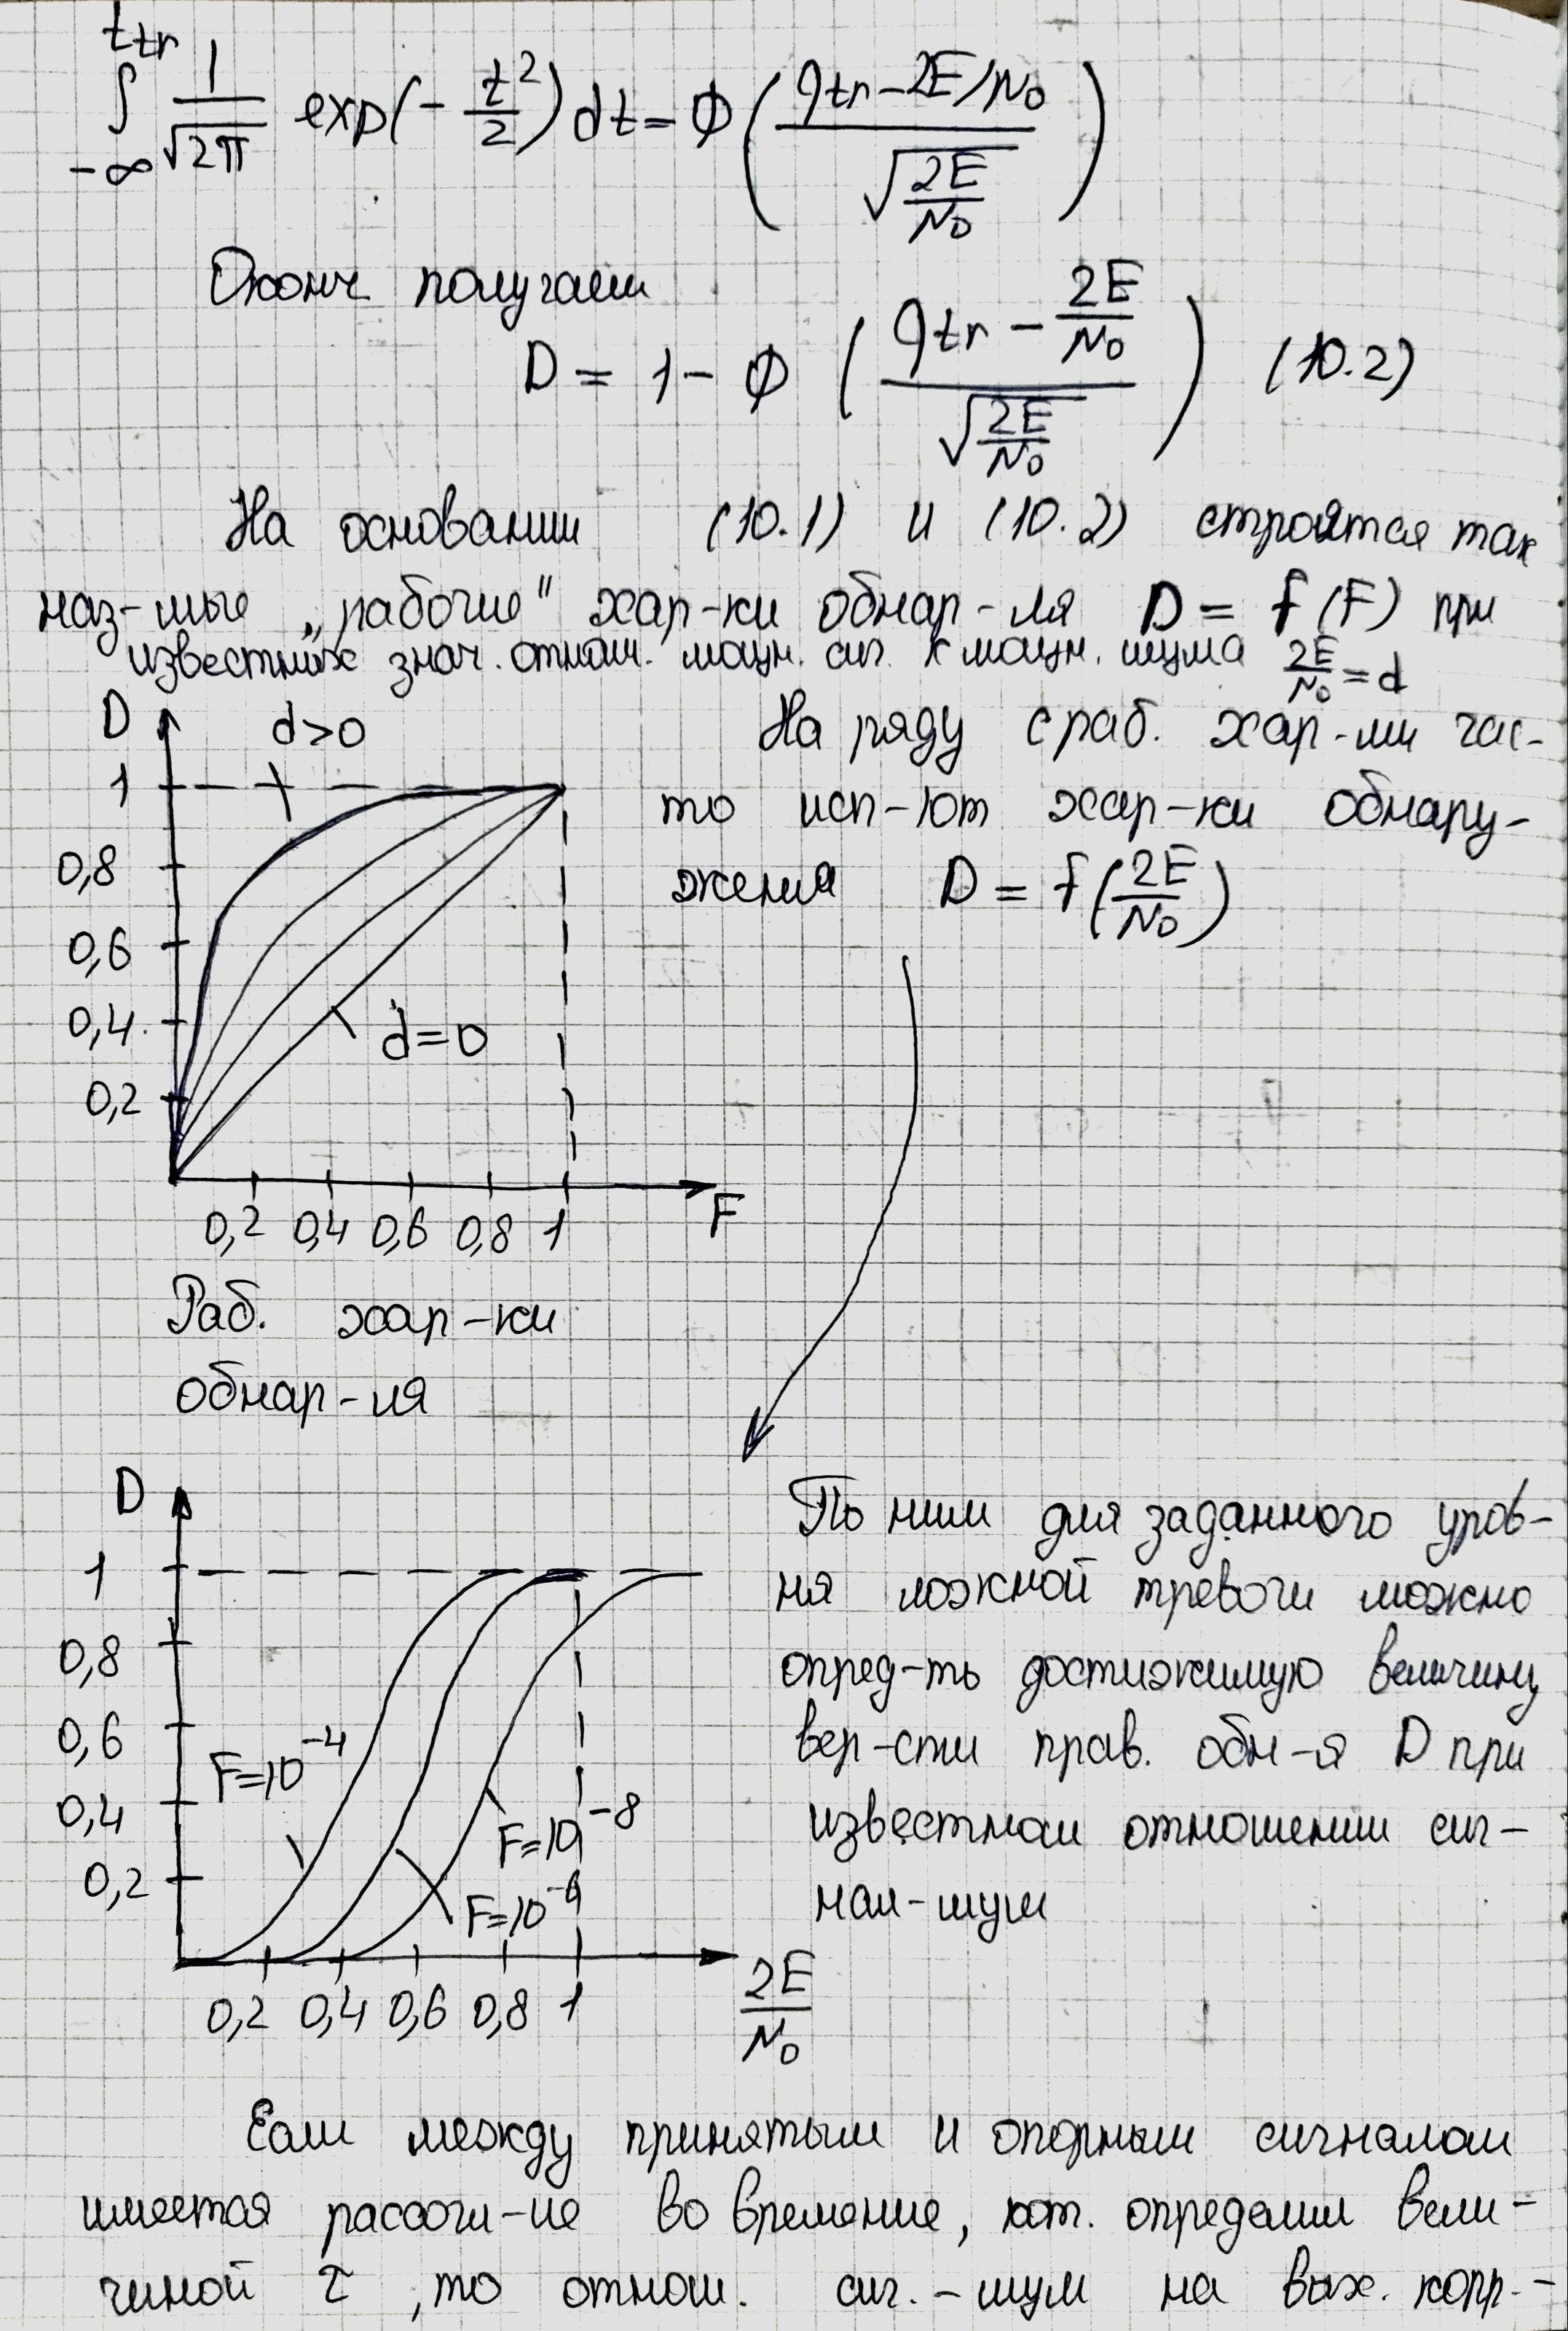 ∫_{-∞}^{t_{tr}} 1/√2π exp(-t²/2)dt = Φ((q_{tr}-2E/N₀)/√(2E/N₀))
Оконч получаем
D = 1 - Φ ((q_{tr} - 2E/N₀)/√(2E/N₀)) (10.2)
На основании (10.1) и (10.2) строятся так
наз-мые „рабочие" хар-ки обнар-ия D = f(F) при
известных знач. отнош. мощн. сиг. к мощн. шума 2E/N₀ = d
D
d>0
1
0,8
0,6
0,4
0,2
d=0
0,2 0,4 0,6 0,8 1
F
Раб. хар-ки
обнар-ия
На ряду с раб. хар-ми час-
то исп-ют хар-ки обнару-
жения D = f(2E/N₀)
D
1
0,8
0,6
0,4
0,2
F=10⁻⁴
F=10⁻⁸
F=10⁻⁶
0,2 0,4 0,6 0,8 1
2E/N₀
По ним для заданного уров-
ня ложной тревоги можно
опред-ть достижимую величину
вер-сти прав. обн-я D при
известном отношении сиг-
нал-шум
Если между принятым и опорным сигналом
имеется рассогл-ие во времение, кот. определим вели-
чиной τ, то отнош. сиг.-шум на вых. корр.-